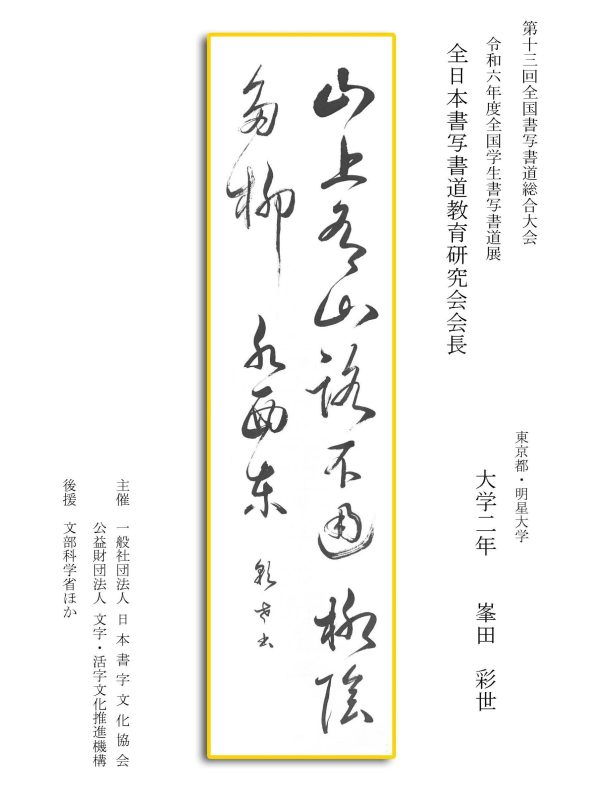 第十三回全国書写書道総合大会
令和六年度全国学生書写書道展
全日本書写書道教育研究会会長
東京都・明星大学
大学二年 峯田 彩世
山上有山路不通柳陰
多柳水西東 彩世書
主催 一般社団法人 日本書字文化協会
公益財団法人 文字・活字文化推進機構
後援 文部科学省ほか